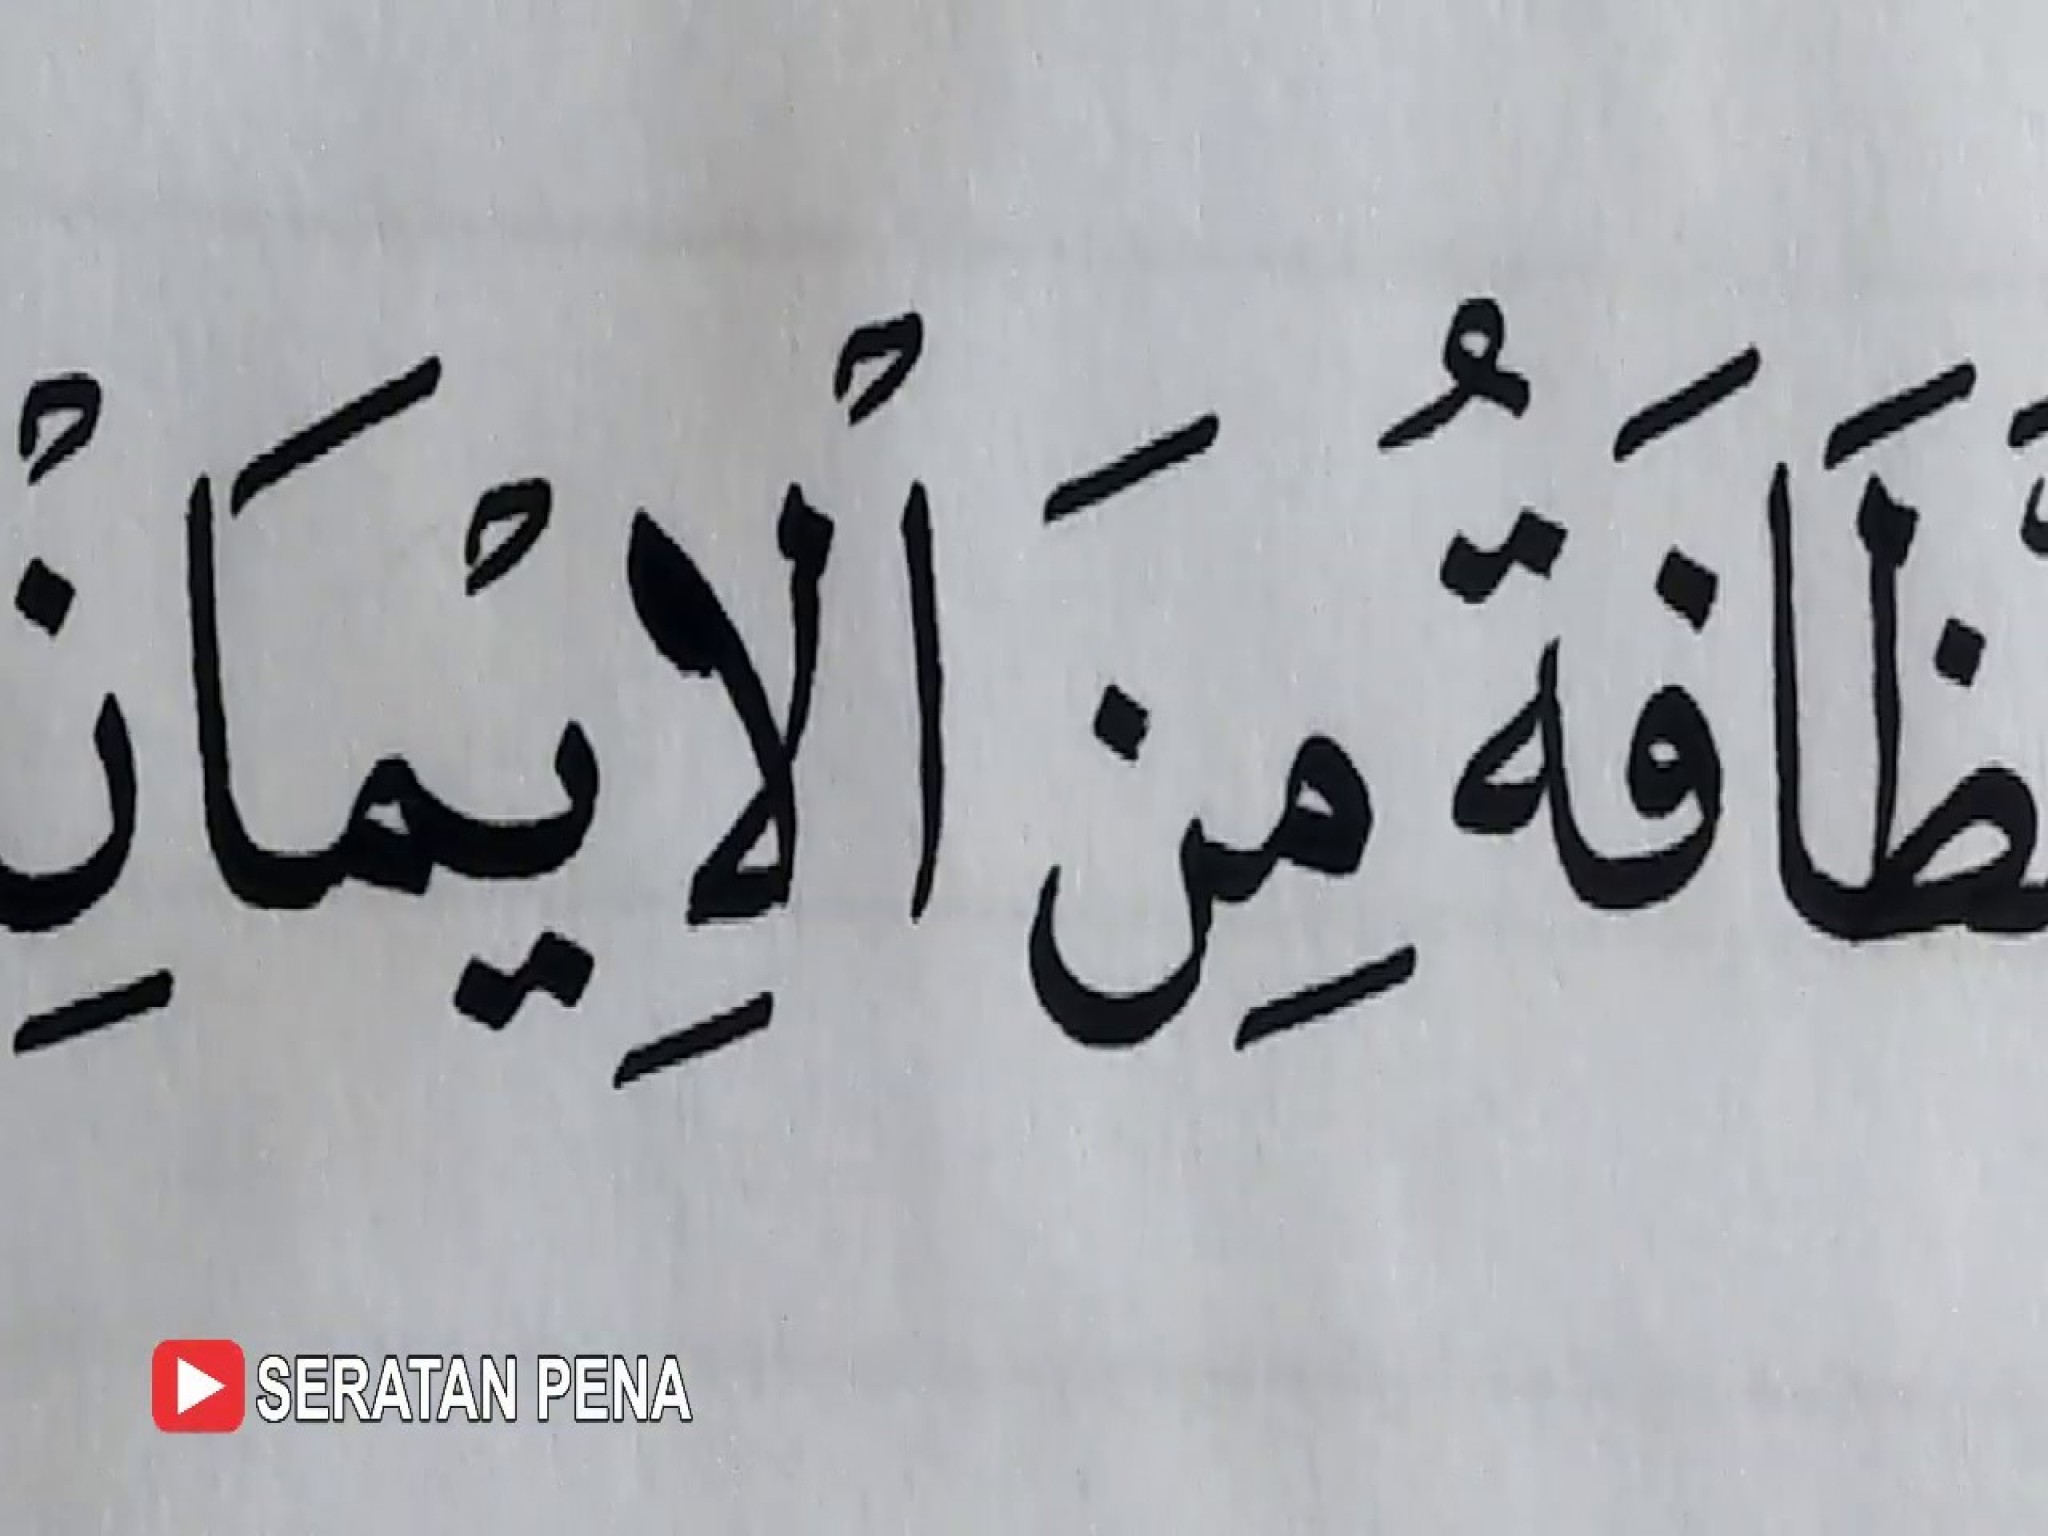 ظَافَةُ مِنَ الْاِيْمَانِْ
SERATAN PENA